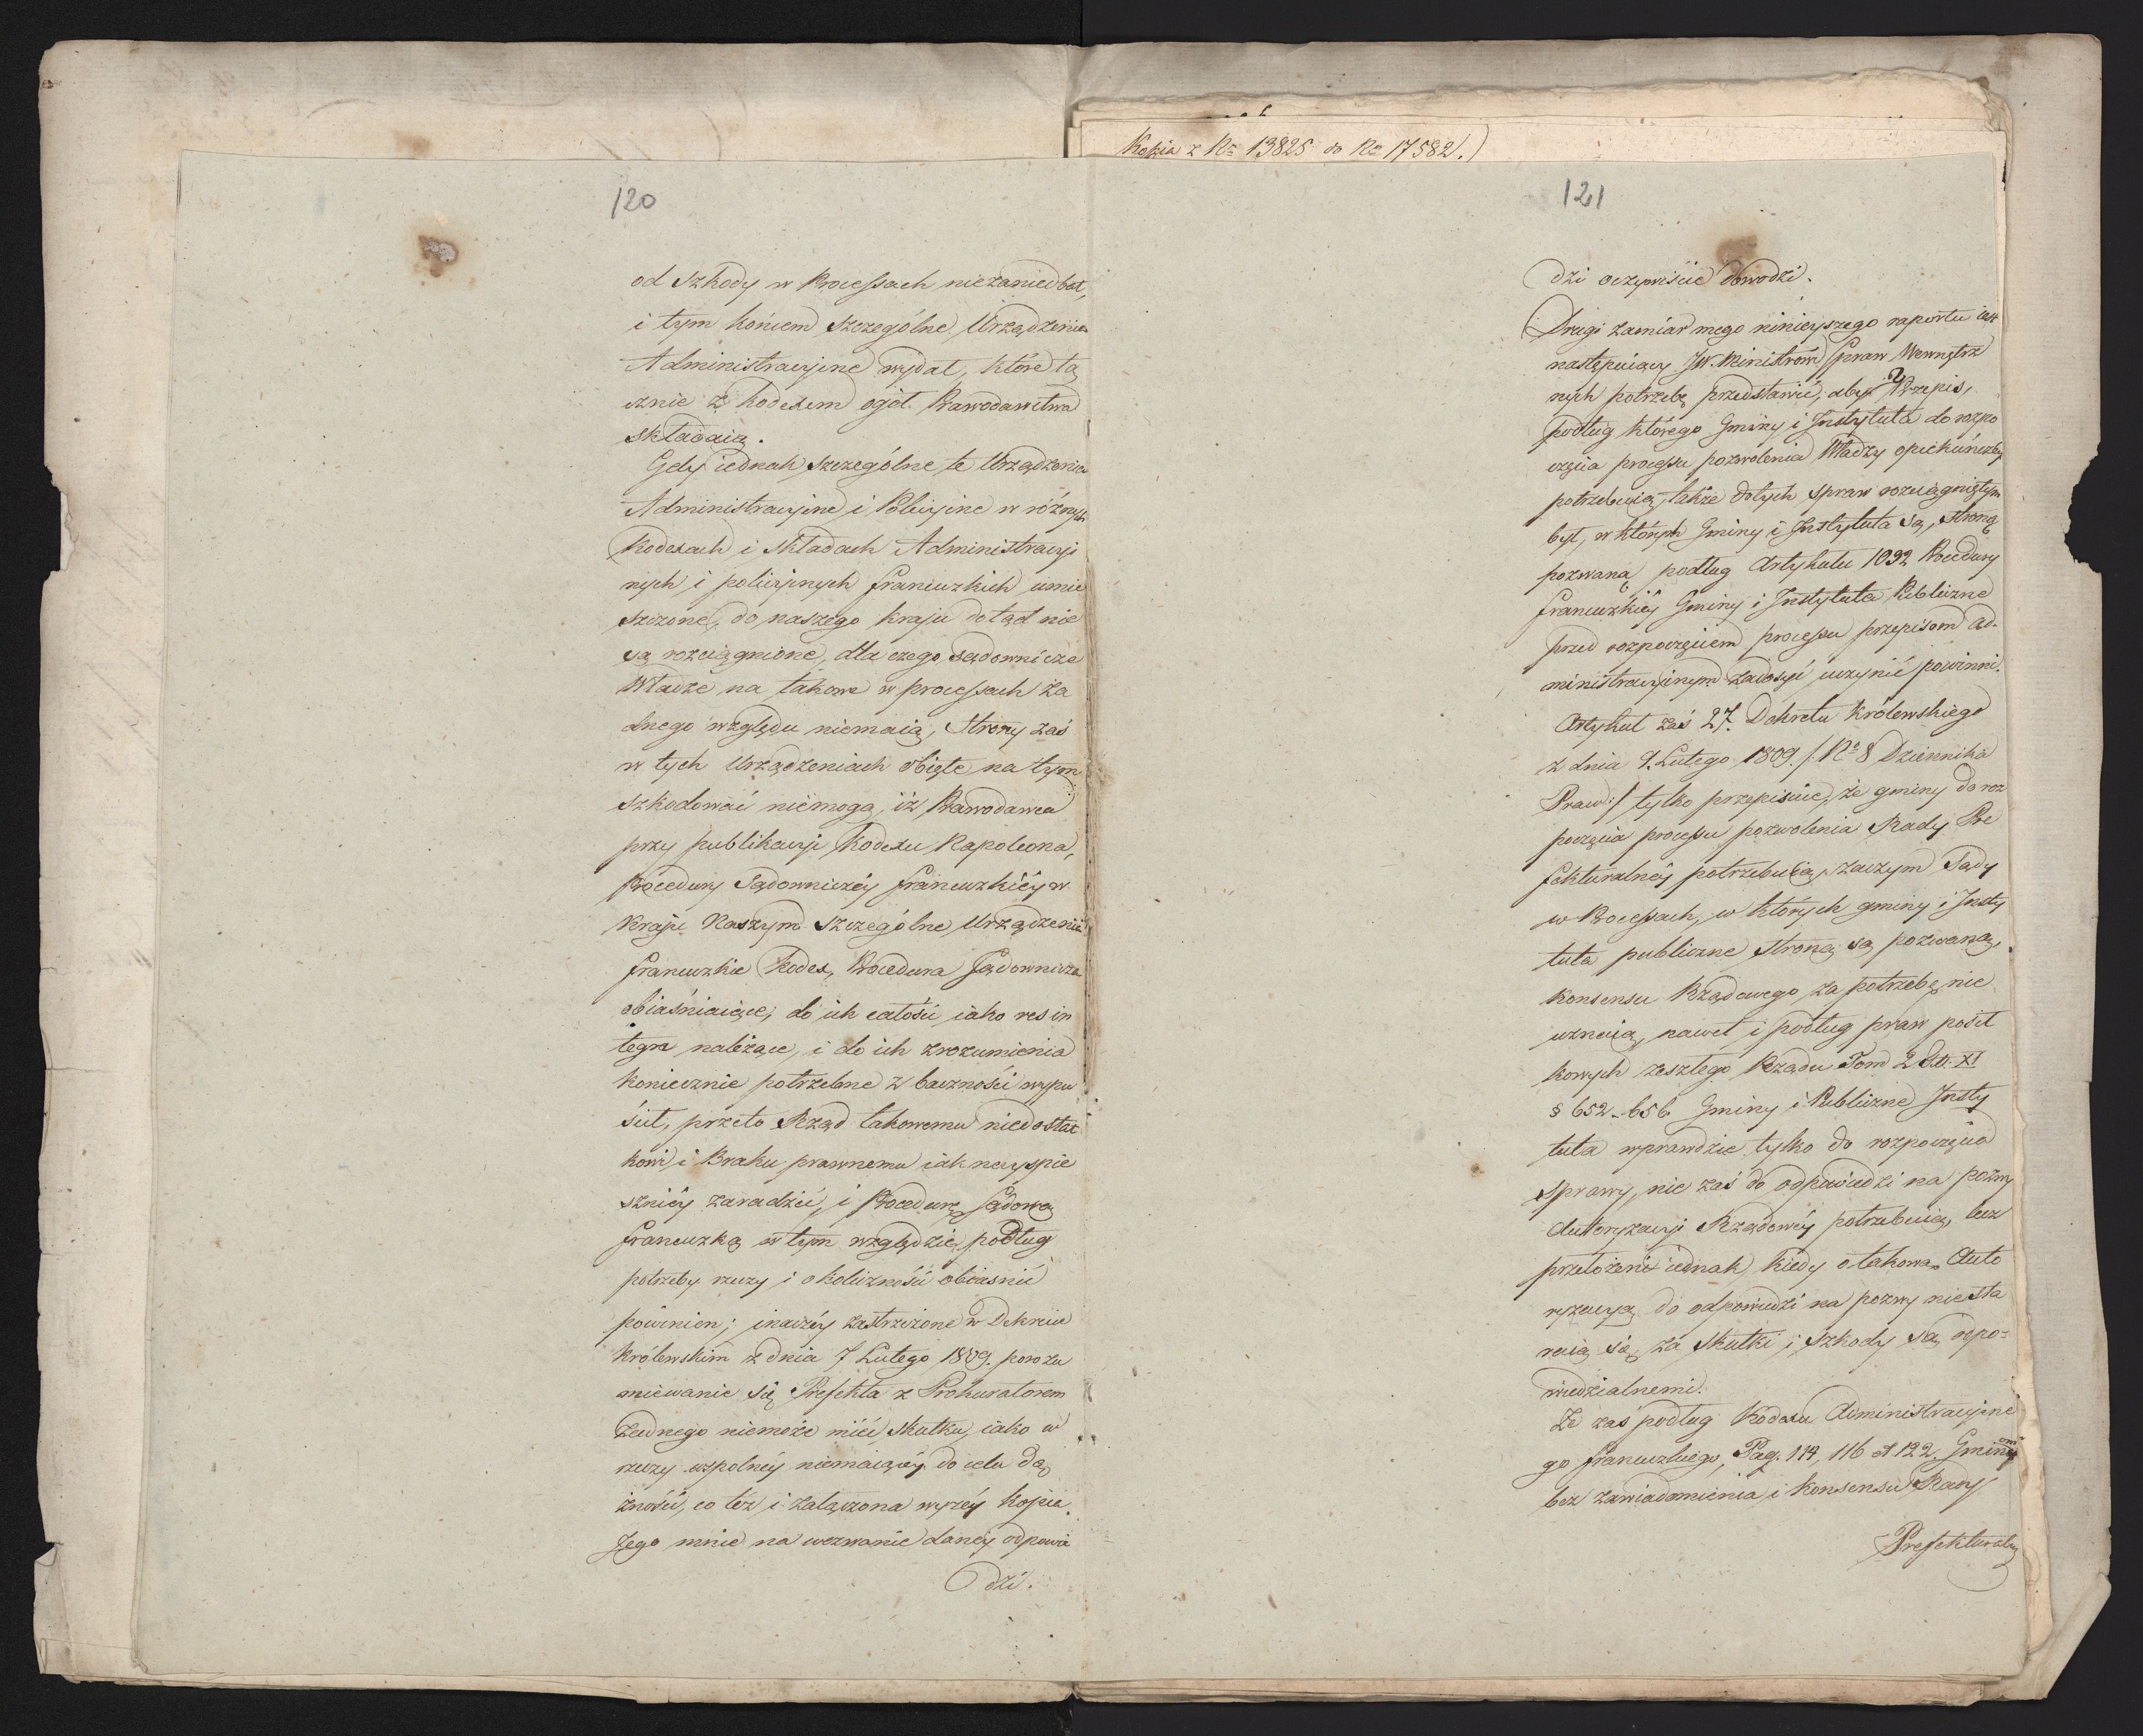 Kopia z Nº 13825 do Nº 17582.)
120
od szkody w Processach niezaniedbał,
i tym końcem szczególne Urządzenia
Administracyine wydał, które łą
cznie z Kodexem ogół Prawodawstwa
składaią.
Gdy iednak szczególne te Urządzenia
Administracyine i Policyine w różnych
Kodexach i składach Administracyi
nych i policyinych francuzkich umie
szczone, do naszego kraju dotąd nie
są rozciągnione, dla czego Sądownicze
Władze na takowe w processach ża
dnego względu niemaią, Strony zaś
w tych Urządzeniach obięte na tym
szkodować niemogą, iż Prawodawca
przy publikacyi Kodexu Napoleona,
Procedury Sądowniczéy francuzkiéy w
kraju Naszym szczególne Urządzenia
francuzkie Kodex, Procedura Sądownicza
obiaśniaiące, do ich całości iako res in
tegra należące, i do ich zrozumienia
koniecznie potrzebne z baczności wypu
ścił, przeto Rząd takowemu niedostat
kowi i Braku prawnemu iak nayspie
szniéy zaradzić, i Procedurę Sądową
francuzką w tym względzie podług
potrzeby rzeczy i okoliczności obiasnić
powinien; inaczéy zastrzeżone w Dekrecie
Królewskim z dnia 7 Lutego 1809. porozu
miewanie się Prefekta z Prokuratorem
żadnego niemoże mieć skutku, iako w
rzeczy wspolnéy niemaiącéy do celu dą
żności, co też i załączona wyżéy kopia
Jego mnie na wezwanie danéy odpowie
dzi.
121
dzi oczywiście dowodzi.
Drugi zamiar mego ninieyszego raportu iest
następuiący JW. Ministrowi Spraw Wewnętrz
nych potrzebę przedstawić, aby Przepis,
podług którego Gminy i Instytuta do rozpo
częcia processu pozwolenia Władzy opiekuńczéy
potrzebuią, także do tych spraw rozciągniętym
był, w których Gminy i Instytuta są, stroną
pozwaną podług Artykułu 1032 Procedury
francuzkiéy Gminy i Instytuta Publiczne
przed rozpoczęciem processu przepisom Ad-
ministracyinym zadosyć uczynić powinni.
Artykuł zaś 27. Dekretu Królewskiego
z dnia 9. Lutego 1809. /: Nº 8 Dziennika
Praw :/ tylko przepisuie, że gminy do roz
poczęcia processu pozwolenia Rady Pre
fekturalnéy potrzebuią, zaczym Sądy
w Processach, w których gminy i Insty
tuta publiczne stroną są pozwaną,
konsensu Rządowego za potrzebę nie
uznaią, nawet i podług praw posił
kowych zeszłego Rządu Tom 2 Tit. XI
§ 652-656 Gminy i Publiczne Insty
tuta wprawdzie tylko do rozpoczęcia
sprawy, nie zaś do odpowiedzi na pozwy
Autoryzacyi Rządowéy potrzebuią, lecz
przełożeni iednak, kiedy o takową Auto
ryzacyą do odpowiedzi na pozwy niesta
raią się, za skutki i szkody są odpo=
wiedzialnemi.
Że zaś podług Kodexu Administracyine
go francuzkiego, Pag. 114, 116 et 122 Gminy
bez zawiadomienia i konsensu Rady
Prefekturalnéy